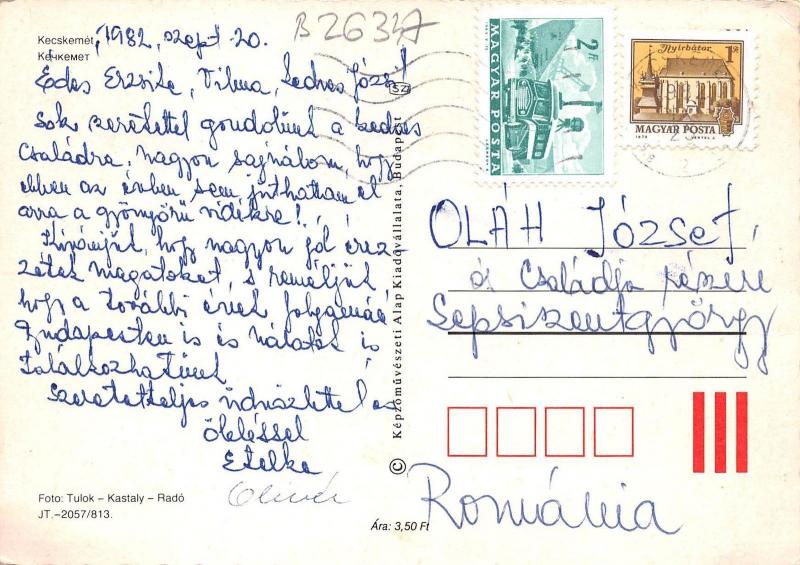 B 26317
Kecskemét, 1982, szept. 20.
Кечкемет
Édes Erzsike, Vilma, kedves József!
Sok szeretettel gondolunk a kedves
családra, nagyon sajnálom, hogy
ebben az évben sem juthattam el
arra a gyönyörű vidékre!
Kívánjuk, hogy nagyon jól érez-
zétek magatokat, s reméljük
hogy a további évek folyamán
Budapesten is és nálatok is
találkozhatunk
Szeretetteljes üdvözlettel és
öleléssel
Etelka
Olivér
Foto: Tulok – Kastaly – Radó
JT.–2057/813.
© Képzőművészeti Alap Kiadóvállalata, Budapest
Ára: 3,50 Ft
2 Ft
MAGYAR POSTA
Nyírbátor
1 Ft
MAGYAR POSTA
OLÁH József,
és Családja részére
Sepsiszentgyörgy
Románia